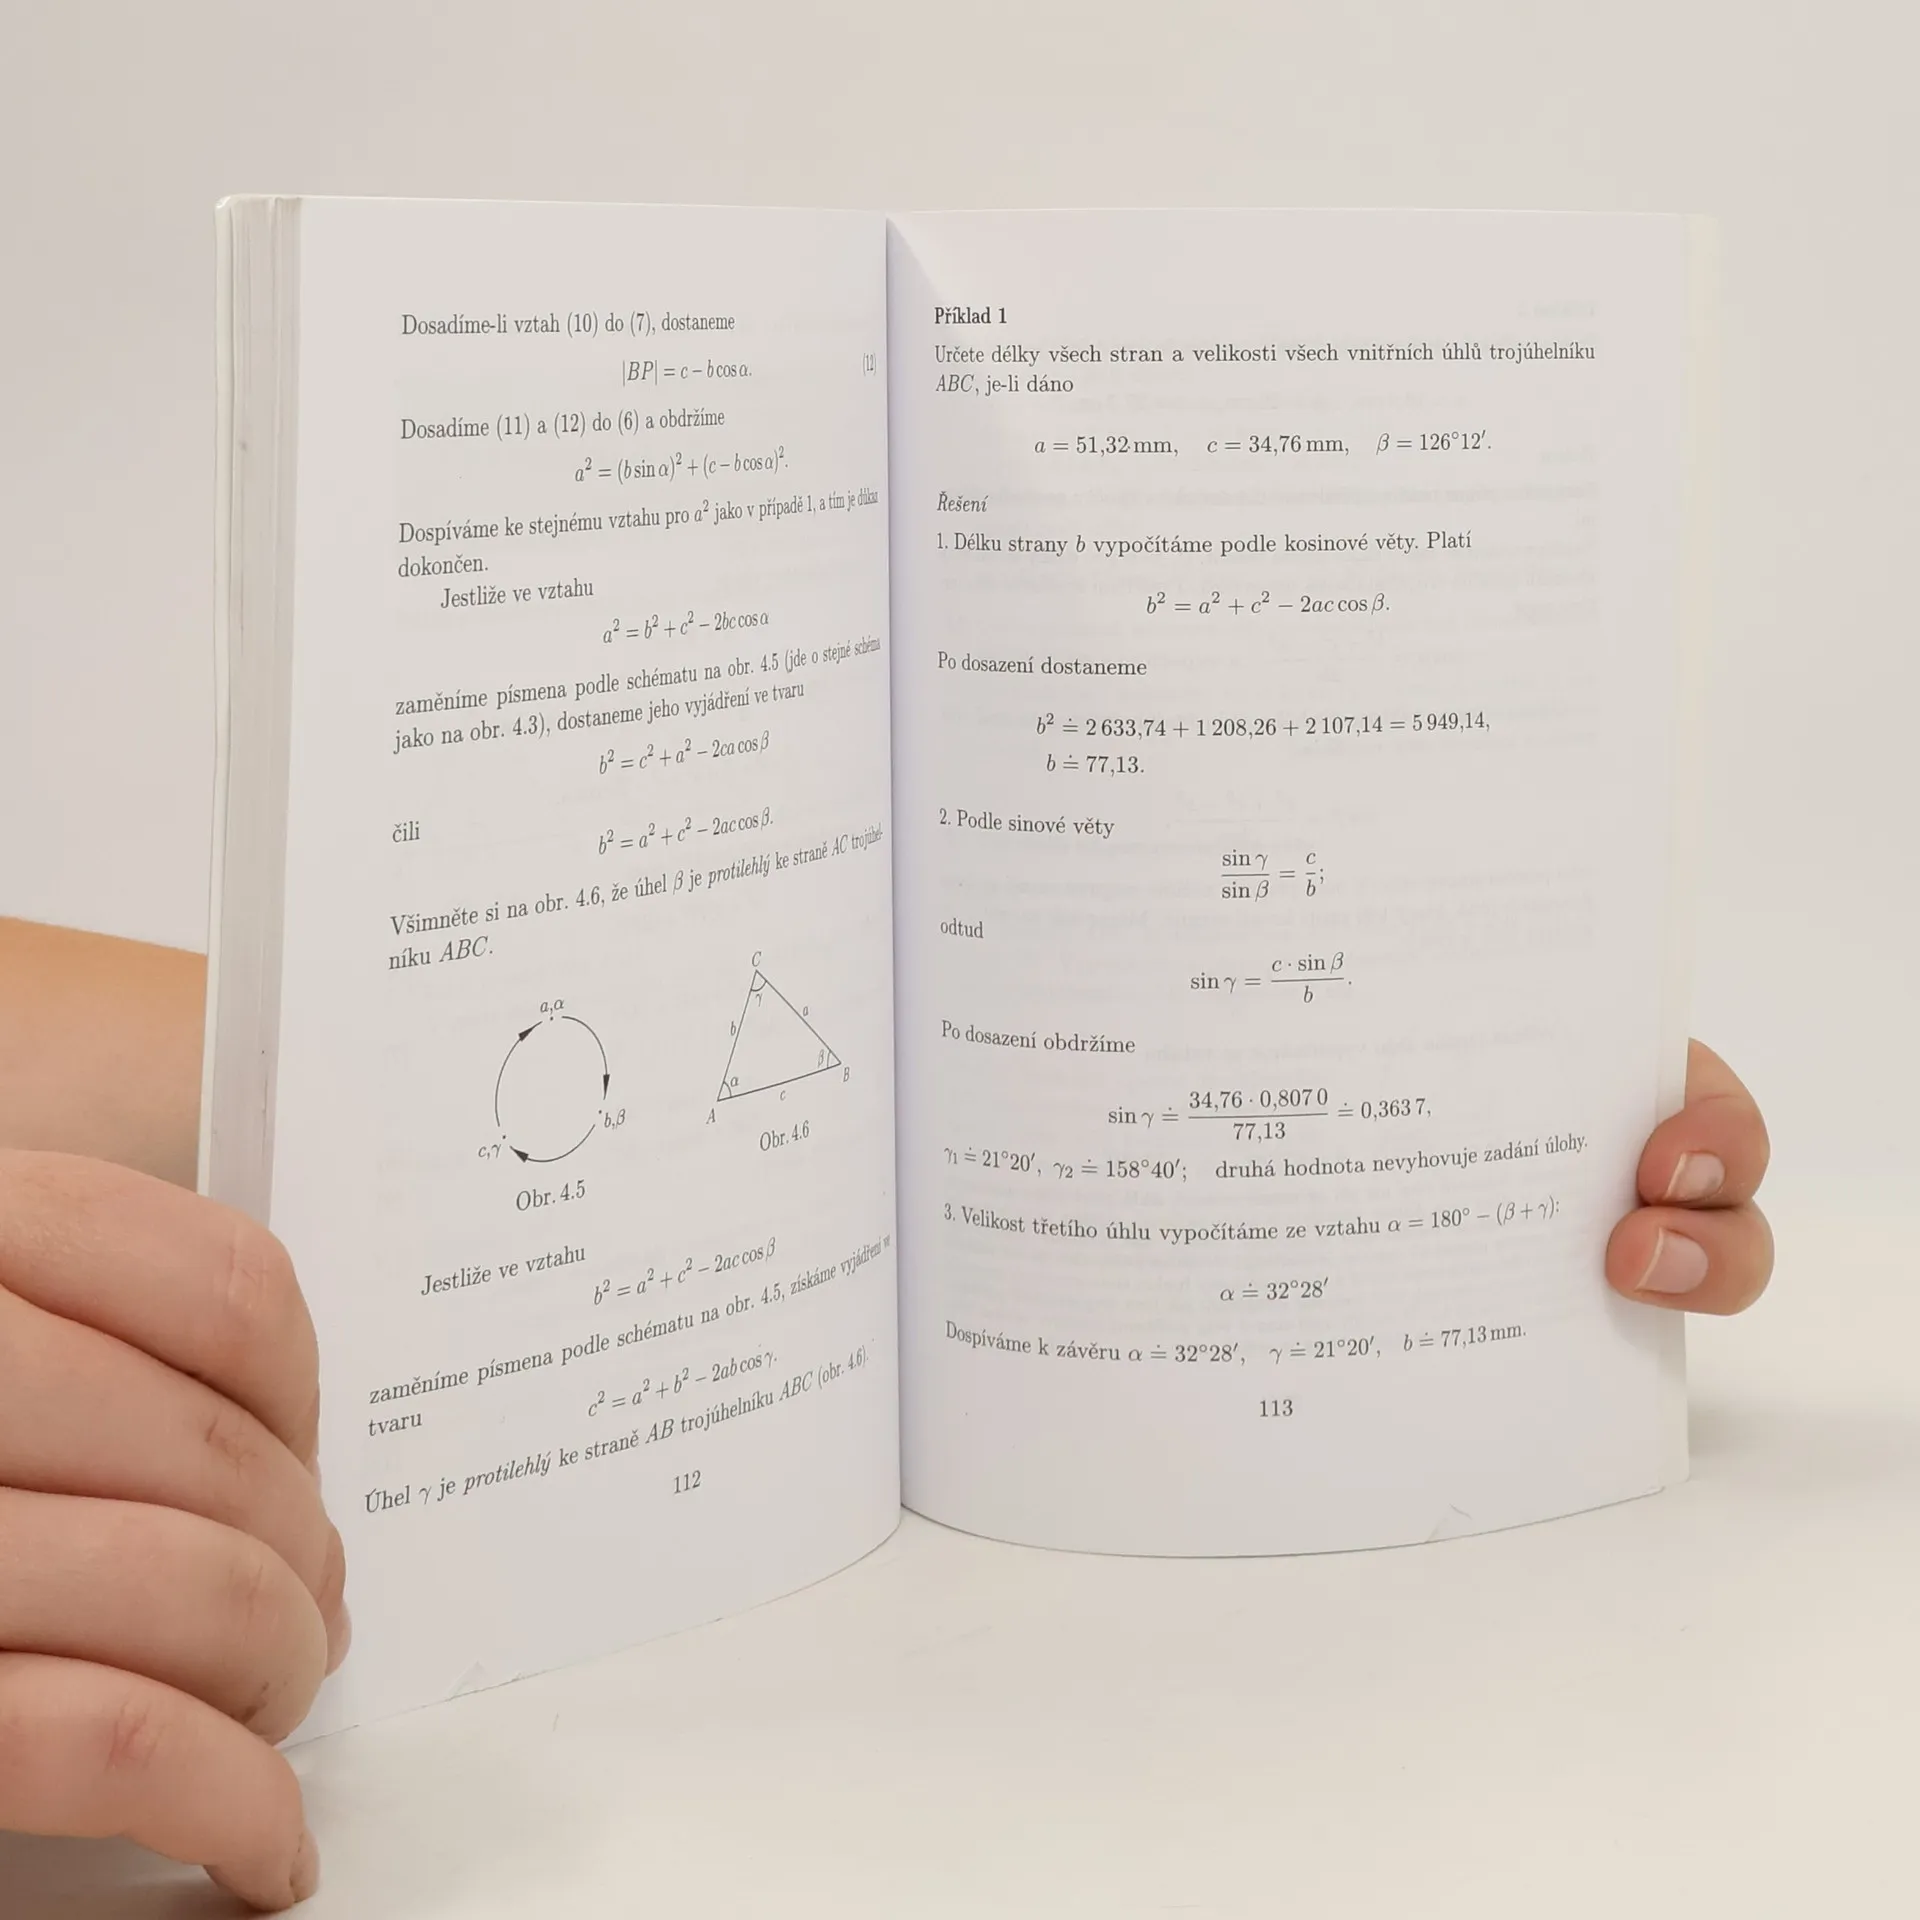 Dosadíme-li vztah (10) do (7), dostaneme
|BP| = c − b cos α. (12)
Dosadíme (11) a (12) do (6) a obdržíme
a² = (b sin α)² + (c − b cos α)².
Dospíváme ke stejnému vztahu pro a² jako v případě 1, a tím je důkaz
dokončen.
Jestliže ve vztahu
a² = b² + c² − 2bc cos α
zaměníme písmena podle schématu na obr. 4.5 (jde o stejné schéma
jako na obr. 4.3), dostaneme jeho vyjádření ve tvaru
b² = c² + a² − 2ca cos β
čili
b² = a² + c² − 2ac cos β.
Všimněte si na obr. 4.6, že úhel β je protilehlý ke straně AC trojúhel-
níku ABC.
a,α
b,β
c,γ
Obr. 4.5
C
γ
b
a
α
β
A
c
B
Obr. 4.6
Jestliže ve vztahu
b² = a² + c² − 2ac cos β
zaměníme písmena podle schématu na obr. 4.5, získáme vyjádření ve
tvaru
c² = a² + b² − 2ab cos γ.
Úhel γ je protilehlý ke straně AB trojúhelníku ABC (obr. 4.6).
112
Příklad 1
Určete délky všech stran a velikosti všech vnitřních úhlů trojúhelníku
ABC, je-li dáno
a = 51,32 mm, c = 34,76 mm, β = 126°12′.
Řešení
1. Délku strany b vypočítáme podle kosinové věty. Platí
b² = a² + c² − 2ac cos β.
Po dosazení dostaneme
b² ≐ 2 633,74 + 1 208,26 + 2 107,14 = 5 949,14,
b ≐ 77,13.
2. Podle sinové věty
sin γ / sin β = c / b;
odtud
sin γ = c · sin β / b.
Po dosazení obdržíme
sin γ ≐ 34,76 · 0,807 0 / 77,13 ≐ 0,363 7,
γ₁ ≐ 21°20′, γ₂ ≐ 158°40′; druhá hodnota nevyhovuje zadání úlohy.
3. Velikost třetího úhlu vypočítáme ze vztahu α = 180° − (β + γ):
α ≐ 32°28′
Dospíváme k závěru α ≐ 32°28′, γ ≐ 21°20′, b ≐ 77,13 mm.
113